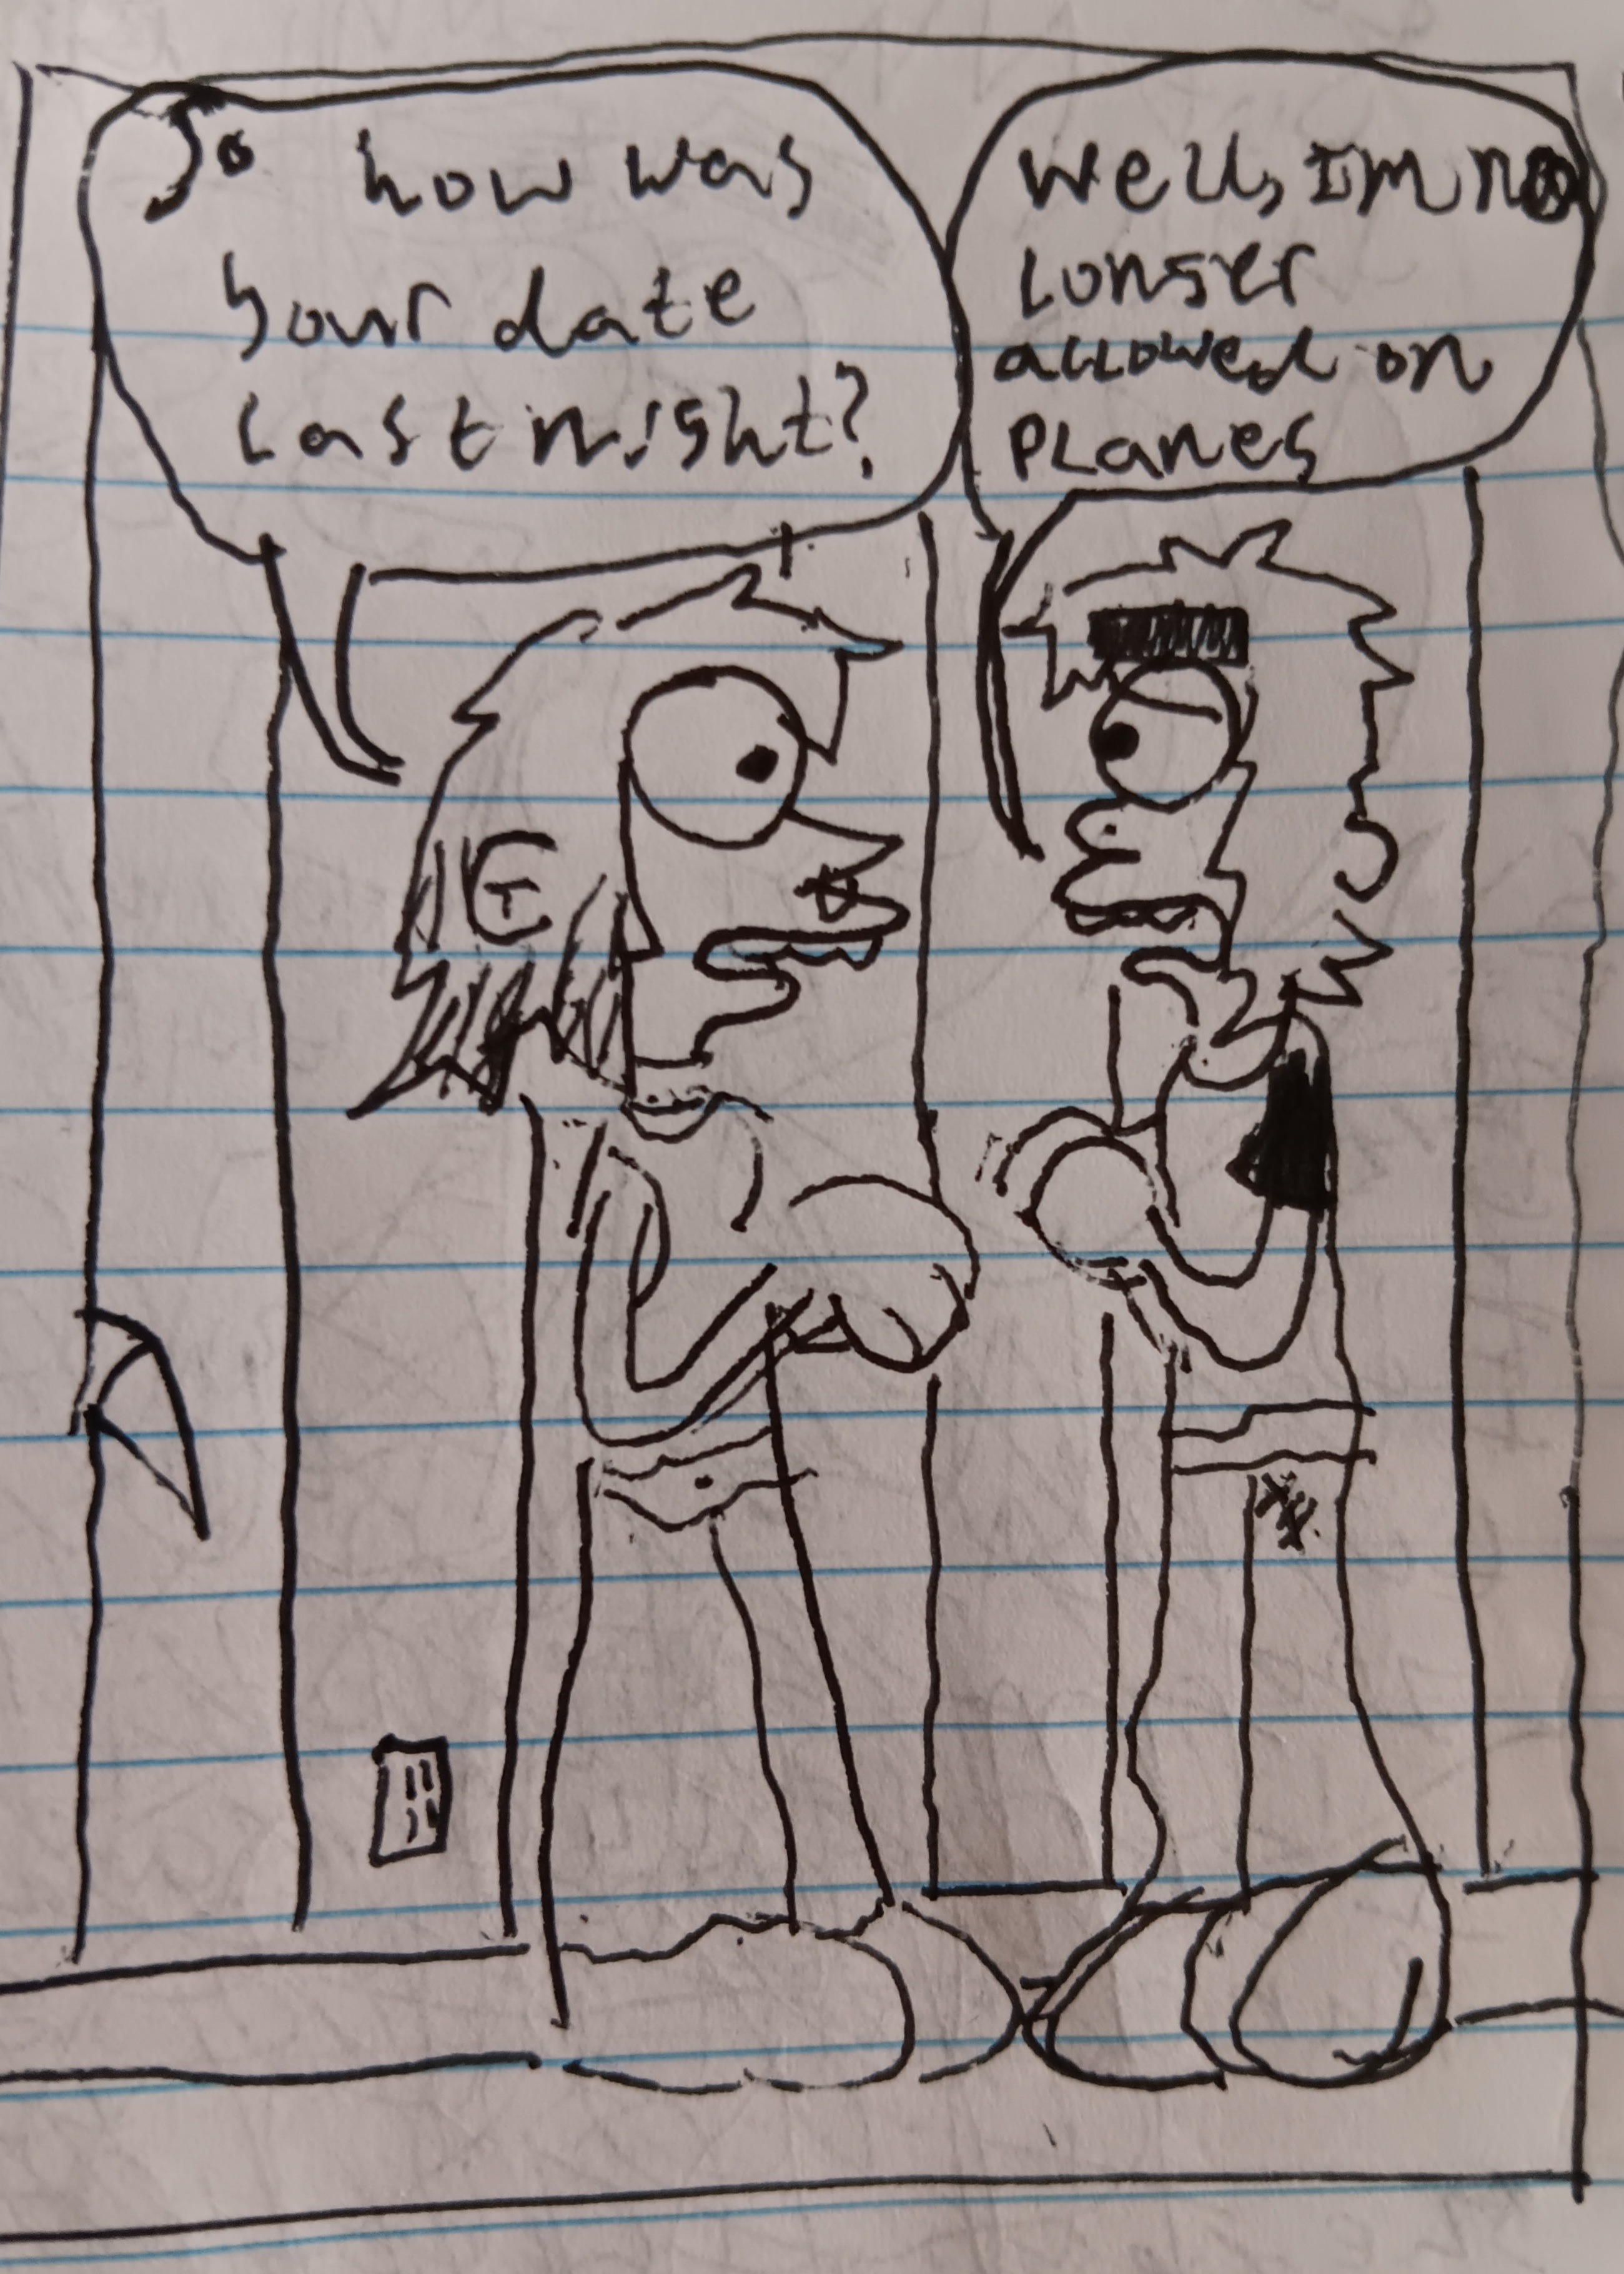 So how was
your date
last night?
Well, Im no
longer
allowed on
Planes